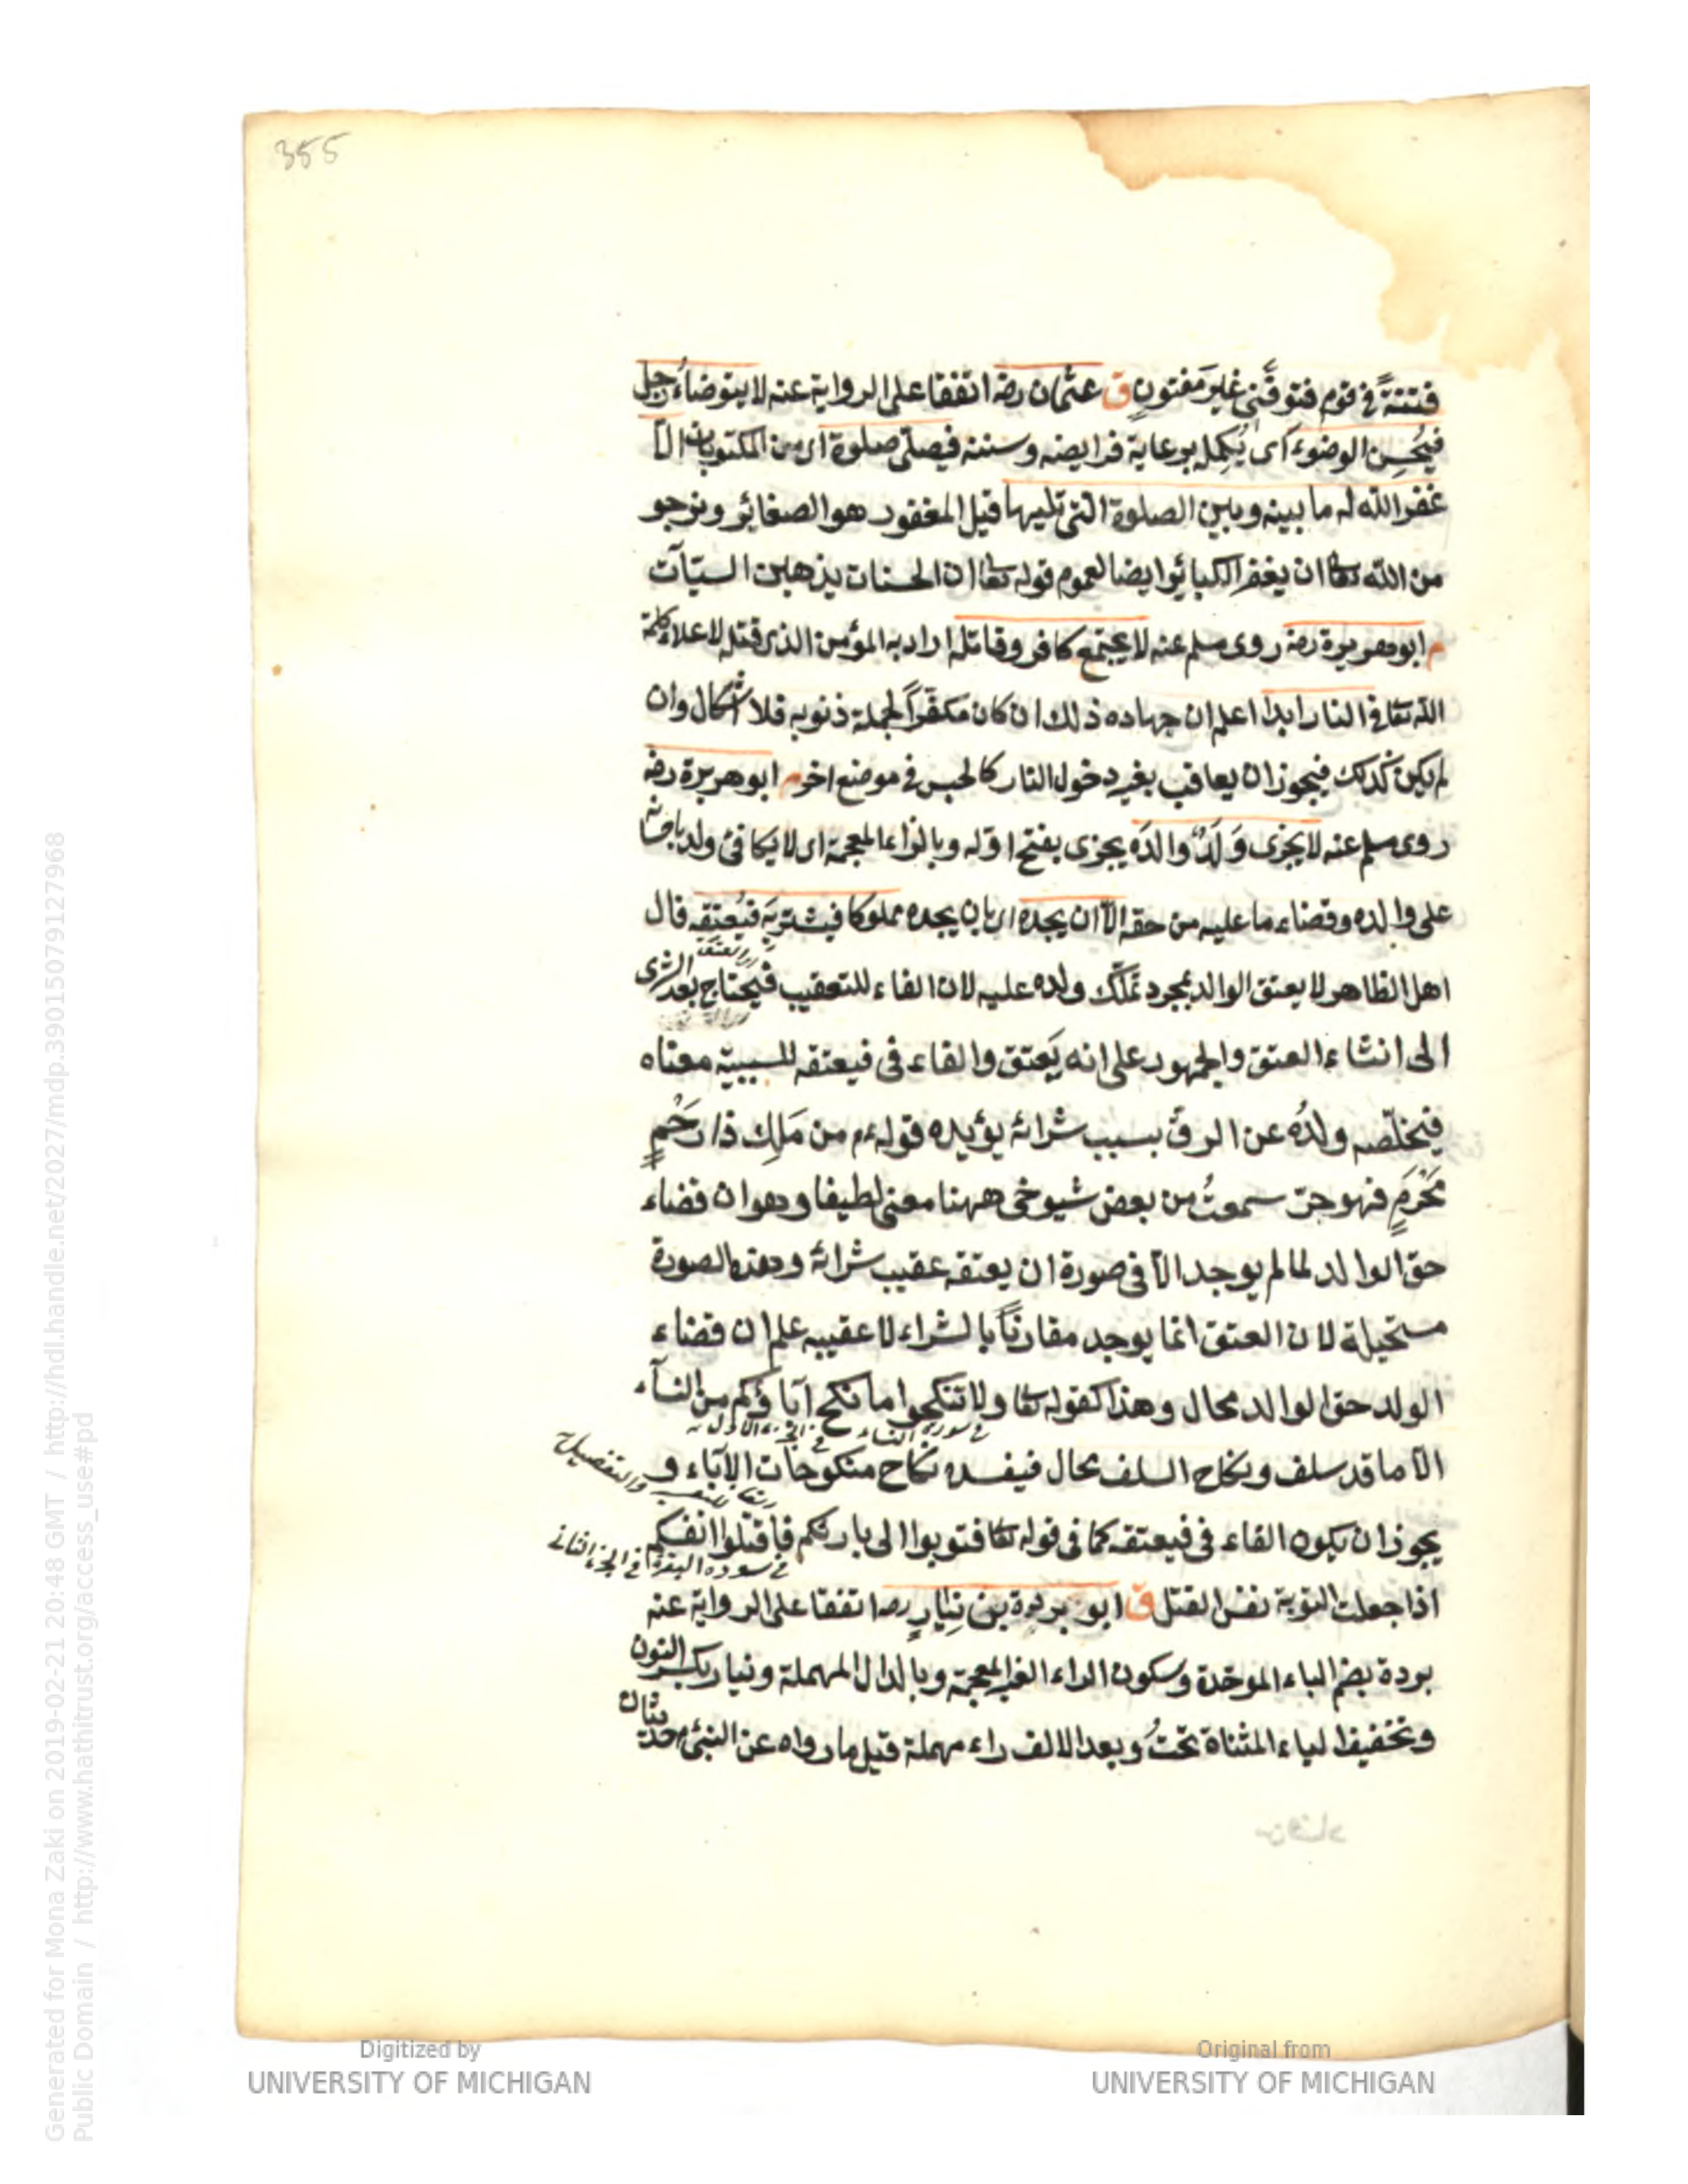 355
فتنةً فى قوم فتوفَّنى غيرَ مفتونٍ ق عثمان رضه اتفقا على الرواية عنه لا يتوضاءُ رجل
فيُحسِن الوضوء اى يُكمله برعاية فرايضه وسننه فيصلّى صلوة اى من المكتوبات الا
غفر الله له ما بينه وبين الصلوة التى تليها قيل المغفور هو الصغائر ونرجو
من الله تعا ان يغفر الكبائر ايضا لعموم قوله تعا ان الحسنات يذهبن السيّآت
م ابو هريرة رضه روى مسلم عنه لا يجتمع كافر وقاتله اراد به المؤمن الذى قتله لاعلاء كلمة
الله تعا فى النار ابدا اعلم ان جهاده ذلك ان كان مكفّراً لجملة ذنوبه فلا اشكال وان
لم يكن كذلك فيجوز ان يعاقب بغير دخول النار كالحبس فى موضع اخر م ابو هريرة رضه
روى مسلم عنه لا يجزى وَلَدٌ والدَه يجزى بفتح اوّله وبالزاء المعجمة اى لا يكافئ ولد باحسانه
على والده وقضاء ما عليه من حقه الّا ان يجده اى بان يجده مملوكا فيشتريَه فيُعتقه قال
اهل الظاهر لا يعتق الوالد بمجرد تملّك ولده عليه لان الفاء للتعقيب فيُحتاج بعد الشرى
الى انشاء العتق والجمهور على انه يَعتق والفاء فى فيعتقه للسببيّة معناه
فيخلّصه ولدُه عن الرق بسبب شرائه يؤيده قوله م من مَلِك ذا رَحْمٍ
مَحْرَمٍ فهو حرّ سمعتُ من بعض شيوخى ههنا معنى لطيفا وهو ان قضاء
حق الوالد لما لم يوجد الّا فى صورة ان يعتقه عقيب شرائه وهذه الصورة
مستحيلة لان العتق انما يوجد مقارناً بالشراء لا عقيبه علم ان قضاء
الولد حق الوالد محال وهذا كقوله تعا ولا تنكحوا ما نكح آباؤكم من النسآء
فى سورة النساء فى الجزء
الّا ما قد سلف ونكاح السلف محال فيفسد نكاح منكوحات الآباء و
يجوز ان يكون الفاء فى فيعتقه كما فى قوله تعا فتوبوا الى بارئكم فاقتلوا انفسكم
فى سورة البقرة فى الجزء
اذا جعلت التوبة نفس القتل ق ابو بردة بن نِيَارٍ رضه اتفقا على الرواية عنه
بردة بضم الباء الموحّدة وسكون الراء الغير المعجمة وبالدال المهملة ونيار بكسر النون
وتخفيف الياء المثناة تحتُ وبعد الالف راء مهملة قيل ما رواه عن النبى م حديثان
Digitized by
UNIVERSITY OF MICHIGAN
Original from
UNIVERSITY OF MICHIGAN
Generated for Mona Zaki on 2019-02-21 20:48 GMT / http://hdl.handle.net/2027/mdp.39015079127968
Public Domain / http://www.hathitrust.org/access_use#pd